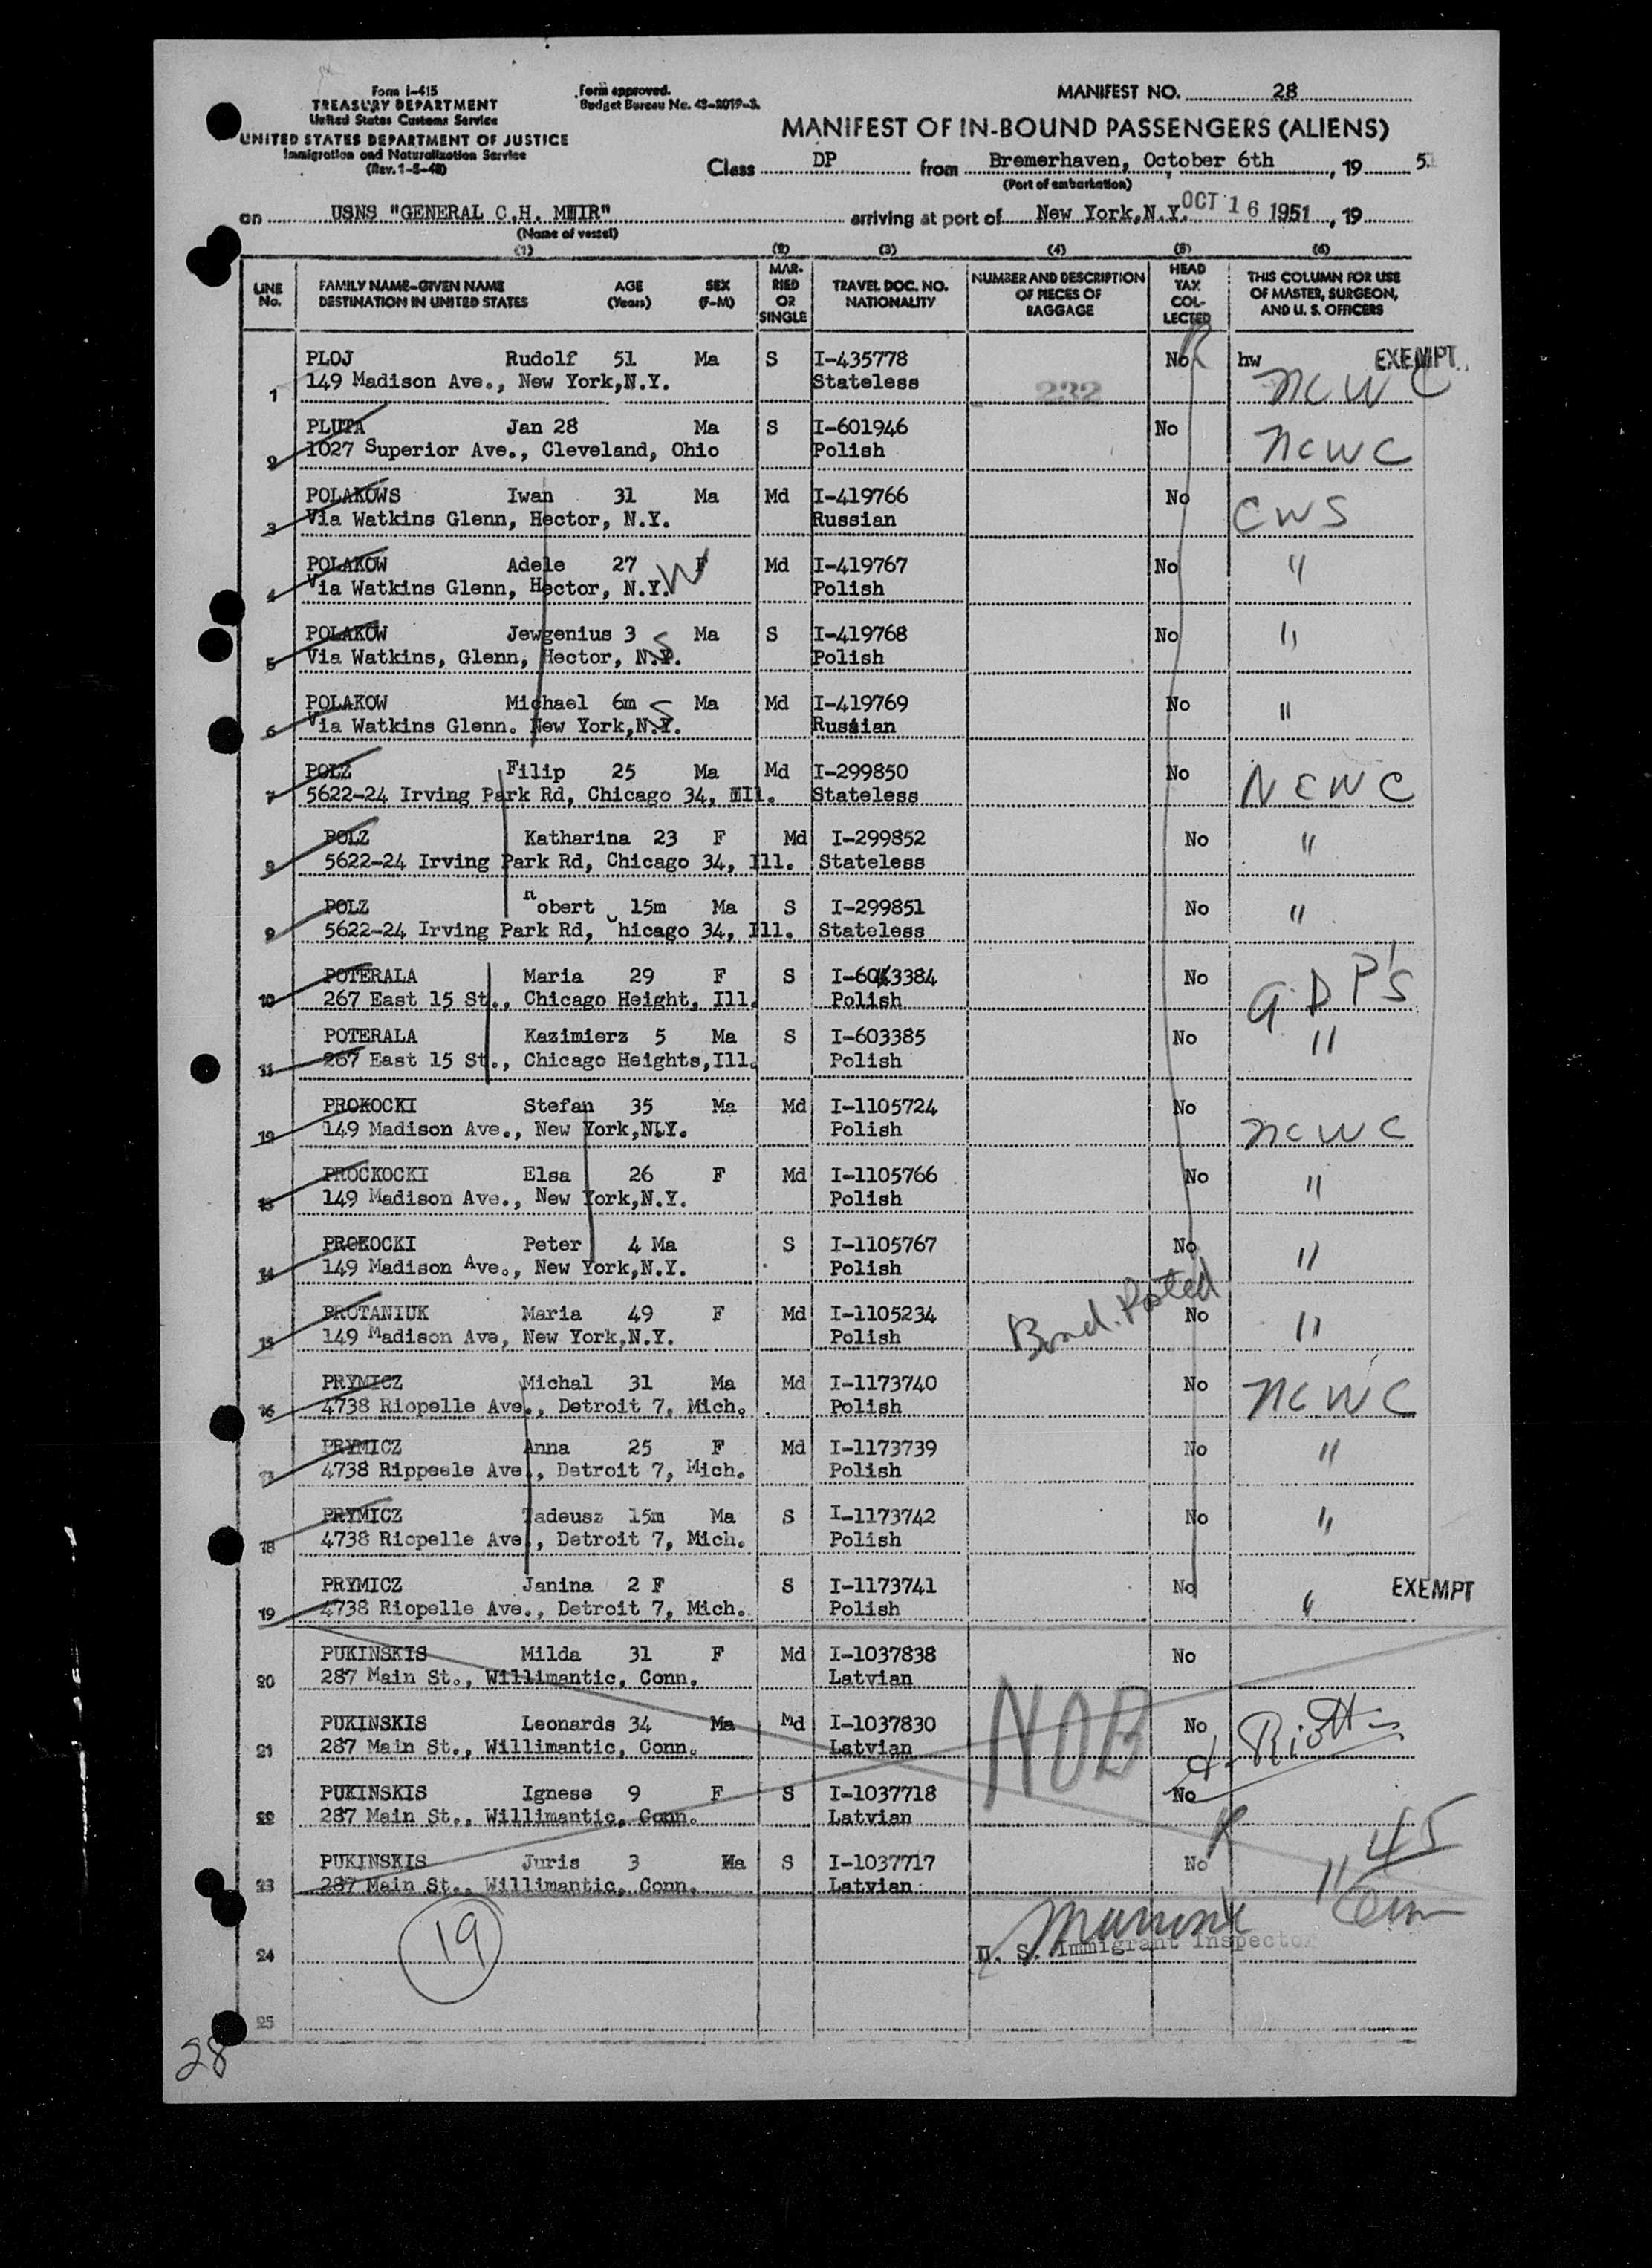 Form I-415
TREASURY DEPARTMENT
United States Customs Service
UNITED STATES DEPARTMENT OF JUSTICE
Immigration and Naturalization Service
(Rev. 1-5-48)
Form approved.
Budget Bureau No. 43-R019-3.
MANIFEST NO. 28
MANIFEST OF IN-BOUND PASSENGERS (ALIENS)
Class DP from Bremerhaven, October 6th, 19 51
(Port of embarkation)
on USNS "GENERAL C.H. MUIR" arriving at port of New York, N.Y. OCT 16 1951, 19
(Name of vessel)
(1) (2) (3) (4) (5) (6)
LINE No. FAMILY NAME-GIVEN NAME DESTINATION IN UNITED STATES AGE (Years) SEX (F-M) MARRIED OR SINGLE TRAVEL DOC. NO. NATIONALITY NUMBER AND DESCRIPTION OF PIECES OF BAGGAGE HEAD TAX COLLECTED THIS COLUMN FOR USE OF MASTER, SURGEON, AND U. S. OFFICERS
PLOJ Rudolf 51 Ma S I-435778 No hw EXEMPT
1 149 Madison Ave., New York,N.Y. Stateless 232 NCWC
PLUTA Jan 28 Ma S I-601946 No
2 1027 Superior Ave., Cleveland, Ohio Polish NCWC
POLAKOWS Iwan 31 Ma Md I-419766 No
3 Via Watkins Glenn, Hector, N.Y. Russian CWS
POLAKOW Adele 27 F W Md I-419767 No "
4 Via Watkins Glenn, Hector, N.Y. Polish
POLAKOW Jewgenius 3 S Ma S I-419768 No "
5 Via Watkins, Glenn, Hector, N.Y. Polish
POLAKOW Michael 6m S Ma Md I-419769 No "
6 Via Watkins Glenn. New York,N.Y. Russian
POLZ Filip 25 Ma Md I-299850 No NCWC
7 5622-24 Irving Park Rd, Chicago 34, Ill. Stateless
POLZ Katharina 23 F Md I-299852 No "
8 5622-24 Irving Park Rd, Chicago 34, Ill. Stateless
POLZ Robert 15m Ma S I-299851 No "
9 5622-24 Irving Park Rd, Chicago 34, Ill. Stateless
POTERALA Maria 29 F S I-603384 No G. DP's
10 267 East 15 St., Chicago Height, Ill. Polish
POTERALA Kazimierz 5 Ma S I-603385 No "
11 267 East 15 St., Chicago Heights,Ill. Polish
PROKOCKI Stefan 35 Ma Md I-1105724 No
12 149 Madison Ave., New York,N.Y. Polish NCWC
PROCKOCKI Elsa 26 F Md I-1105766 No "
13 149 Madison Ave., New York,N.Y. Polish
PROKOCKI Peter 4 Ma S I-1105767 No "
14 149 Madison Ave., New York,N.Y. Polish
PROTANIUK Maria 49 F Md I-1105234 Bond. Posted No "
15 149 Madison Ave, New York,N.Y. Polish
PRYMICZ Michal 31 Ma Md I-1173740 No NCWC
16 4738 Riopelle Ave., Detroit 7, Mich. Polish
PRYMICZ Anna 25 F Md I-1173739 No "
17 4738 Rippeele Ave., Detroit 7, Mich. Polish
PRYMICZ Tadeusz 15m Ma S I-1173742 No "
18 4738 Riopelle Ave., Detroit 7, Mich. Polish
PRYMICZ Janina 2 F S I-1173741 No " EXEMPT
19 4738 Riopelle Ave., Detroit 7, Mich. Polish
PUKINSKIS Milda 31 F Md I-1037838 No
20 287 Main St., Willimantic, Conn. Latvian
PUKINSKIS Leonards 34 Ma Md I-1037830 NOB No
21 287 Main St., Willimantic, Conn. Latvian
PUKINSKIS Ignese 9 F S I-1037718 No
22 287 Main St., Willimantic, Conn. Latvian
PUKINSKIS Juris 3 Ma S I-1037717 No 11 45
23 287 Main St., Willimantic, Conn. Latvian
24 19 U. S. Immigrant Inspector
25
28